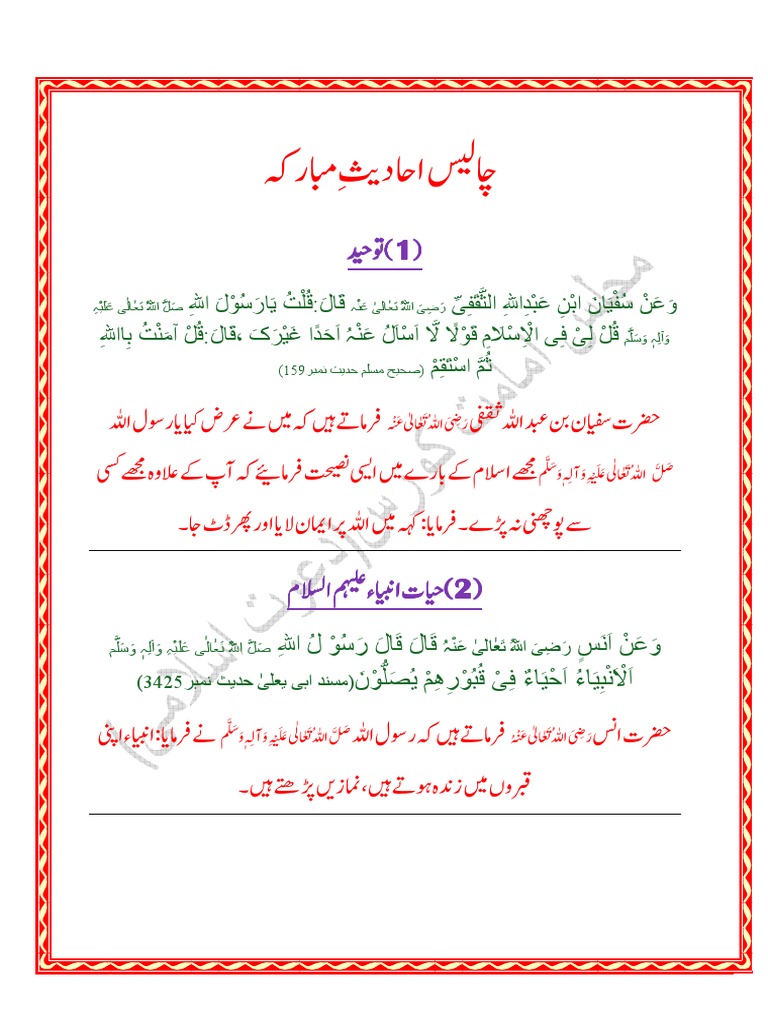 چالیس احادیثِ مبارکہ
(1) توحید
وَعَنْ سُفْیَانَ ابْنِ عَبْدِاللهِ الثَّقْفِیِّ رَضِیَ اللهُ تَعَالیٰ عَنْہُ قَالَ:قُلْتُ یَارَسُوْلَ اللهِ صَلَّی اللهُ تَعَالٰی عَلَیْہِ
وَآلِہٖ وَسَلَّم قُلْ لِیْ فِی الْاِسْلَامِ قَوْلًا لَّا اَسْاَلُ عَنْہُ اَحَدًا غَیْرَکَ ،قَالَ:قُلْ آمَنْتُ بِااللهِ
ثُمَّ اسْتَقِمْ (صحیح مسلم حدیث نمبر 159)
حضرت سفیان بن عبد اللہ ثقفی رَضِیَ اللہُ تَعَالیٰ عَنْہُ فرماتے ہیں کہ میں نے عرض کیا یارسول اللہ
صَلَّی اللہُ تَعَالٰی عَلَیْہِ وَآلِہٖ وَسَلَّم مجھے اسلام کے بارے میں ایسی نصیحت فرمائیے کہ آپ کے علاوہ مجھے کسی
سے پوچھنی نہ پڑے۔ فرمایا: کہہ میں اللہ پر ایمان لایا اور پھر ڈٹ جا۔
(2) حیات انبیاء علیہم السلام
وَعَنْ اَنَسٍ رَضِیَ اللهُ تَعَالیٰ عَنْہُ قَالَ قَالَ رَسُوْ لُ اللهِ صَلَّی اللهُ تَعَالٰی عَلَیْہِ وَآلِہٖ وَسَلَّم
اَلْاَنْبِیَاءُ اَحْیَاءٌ فِیْ قُبُوْرِھِمْ یُصَلُّوْنَ(مسند ابی یعلیٰ حدیث نمبر 3425)
حضرت انس رَضِیَ اللہُ تَعَالیٰ عَنْہُ فرماتے ہیں کہ رسول اللہ صَلَّی اللہُ تَعَالٰی عَلَیْہِ وَآلِہٖ وَسَلَّم نے فرمایا: انبیاء اپنی
قبروں میں زندہ ہوتے ہیں، نمازیں پڑھتے ہیں۔
مجلس امامت کورس(دعوت اسلامی)